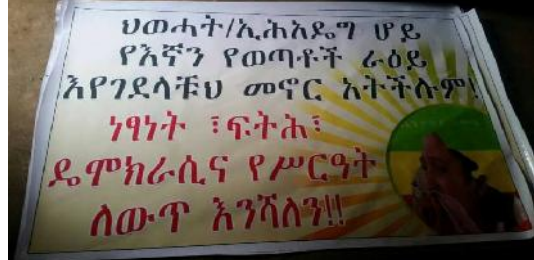 ህወሓት/ኢሕአዴግ ሆይ
የእኛን የወጣቶች ራዕይ
እየገደላቹህ መኖር አትችሉም!
ነፃነት ፣ፍትሕ፣
ዴሞክራሲና የሥርዓት
ለውጥ እንሻለን!!